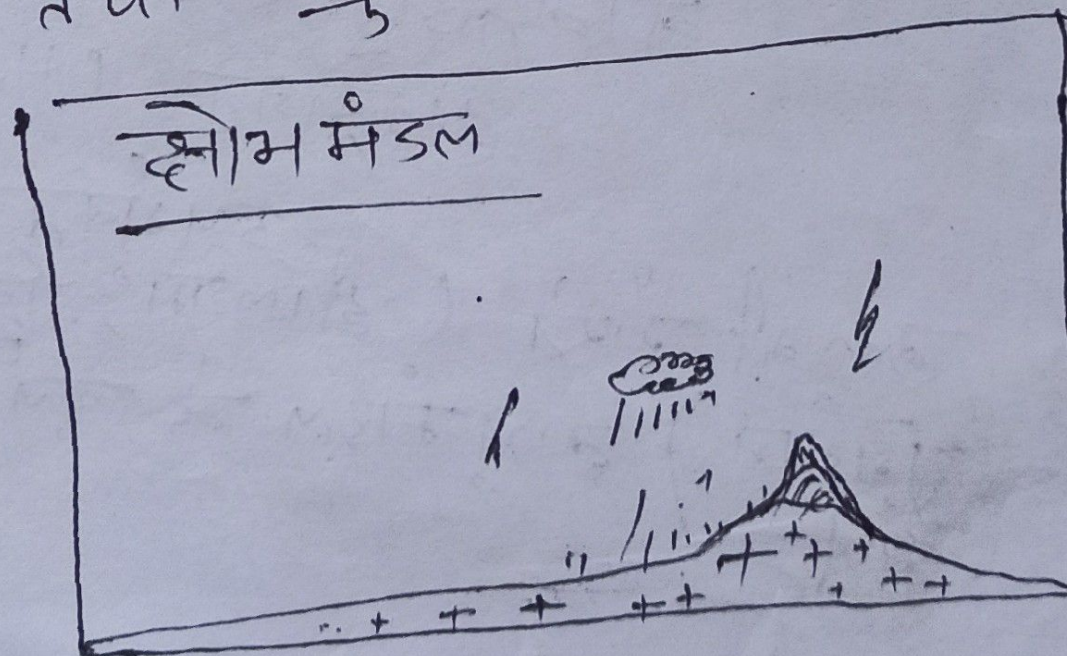 क्षोभ मंडल